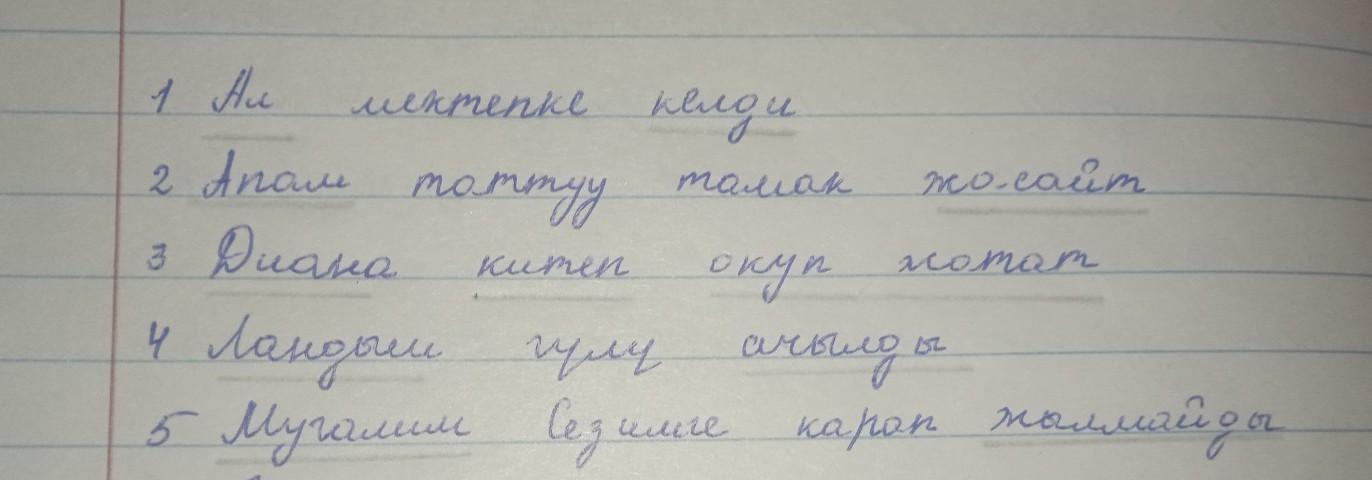 1 Ал мектепке келди
2 Апам таттуу тамак жасайт
3 Диана китеп окуп жатат
4 Ландыш гулу ачылды
5 Мугалим Сезимге карап жылмайды